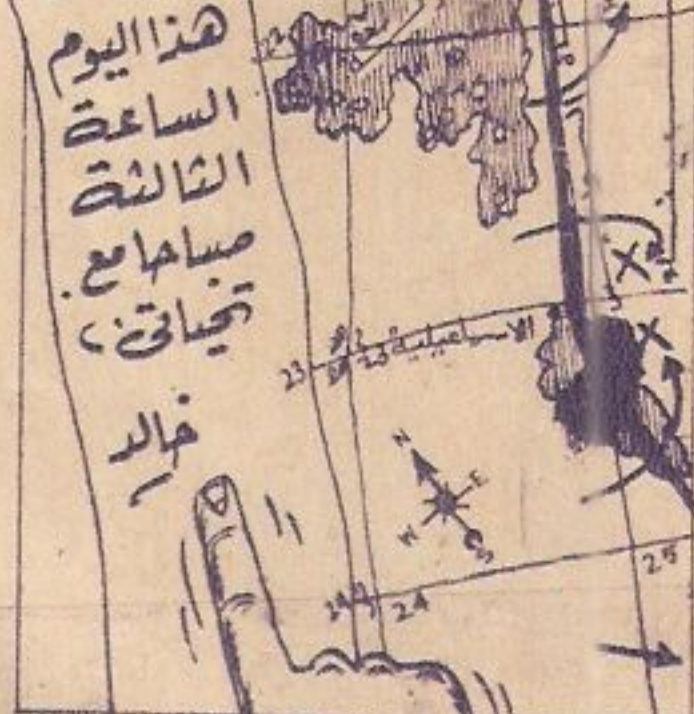 هذا اليوم
الساعة
الثالثة
صباحا مع
تحياتى
خالد
23
23
الاسماعيلية
N
E
W
S
24
24
25